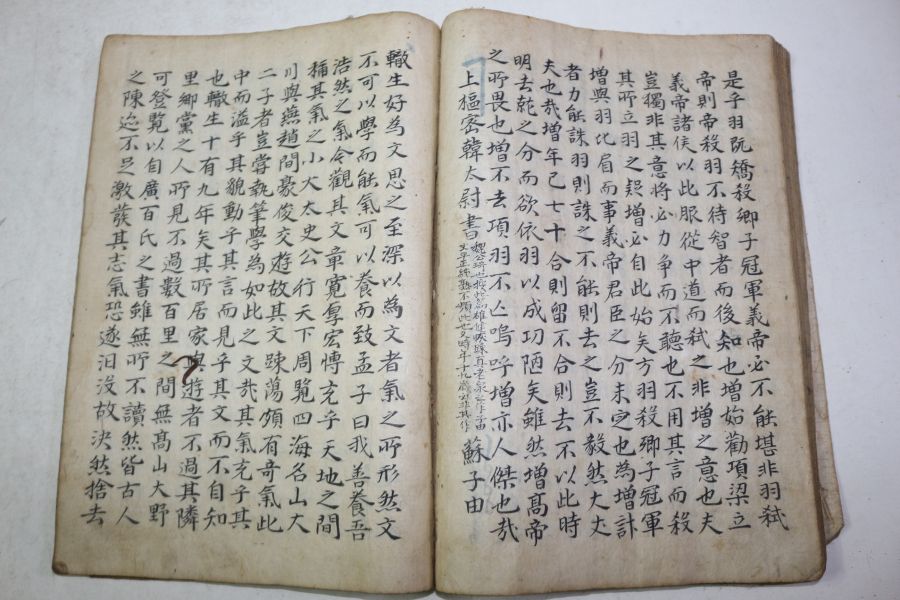 是乎羽既矯殺卿子冠軍義帝必不能堪非羽弑
帝則帝殺羽不待智者而後知也增始勸項梁立
義帝諸侯以此服從中道而弑之非增之意也夫
豈獨非其意將必力争而不聽也不用其言而殺
其所立羽之疑增必自此始矣方羽殺卿子冠軍
增與羽比肩而事義帝君臣之分未定也為增計
者力能誅羽則誅之不能則去之豈不毅然大丈
夫也哉增年已七十合則留不合則去不以此時
明去就之分而欲依羽以成功陋矣雖然增髙帝
之所畏也增不去項羽不亡嗚呼增亦人傑也哉
上樞密韓太尉書 蘇子由
轍生好為文思之至深以為文者氣之所形然文
不可以學而能氣可以養而致孟子曰我善養吾
浩然之氣今觀其文章寬厚宏愽充乎天地之間
稱其氣之小大太史公行天下周覽四海名山大
川與燕趙間豪俊交遊故其文踈蕩頗有奇氣此
二子者豈嘗執筆學為如此之文哉其氣充乎其
中而溢乎其貌動乎其言而見乎其文而不自知
也轍生十有九年矣其所居家與遊者不過其隣
里鄉黨之人所見不過數百里之間無髙山大野
可登覧以自廣百氏之書雖無所不讀然皆古人
之陳迹不足激發其志氣恐遂汨沒故決然捨去